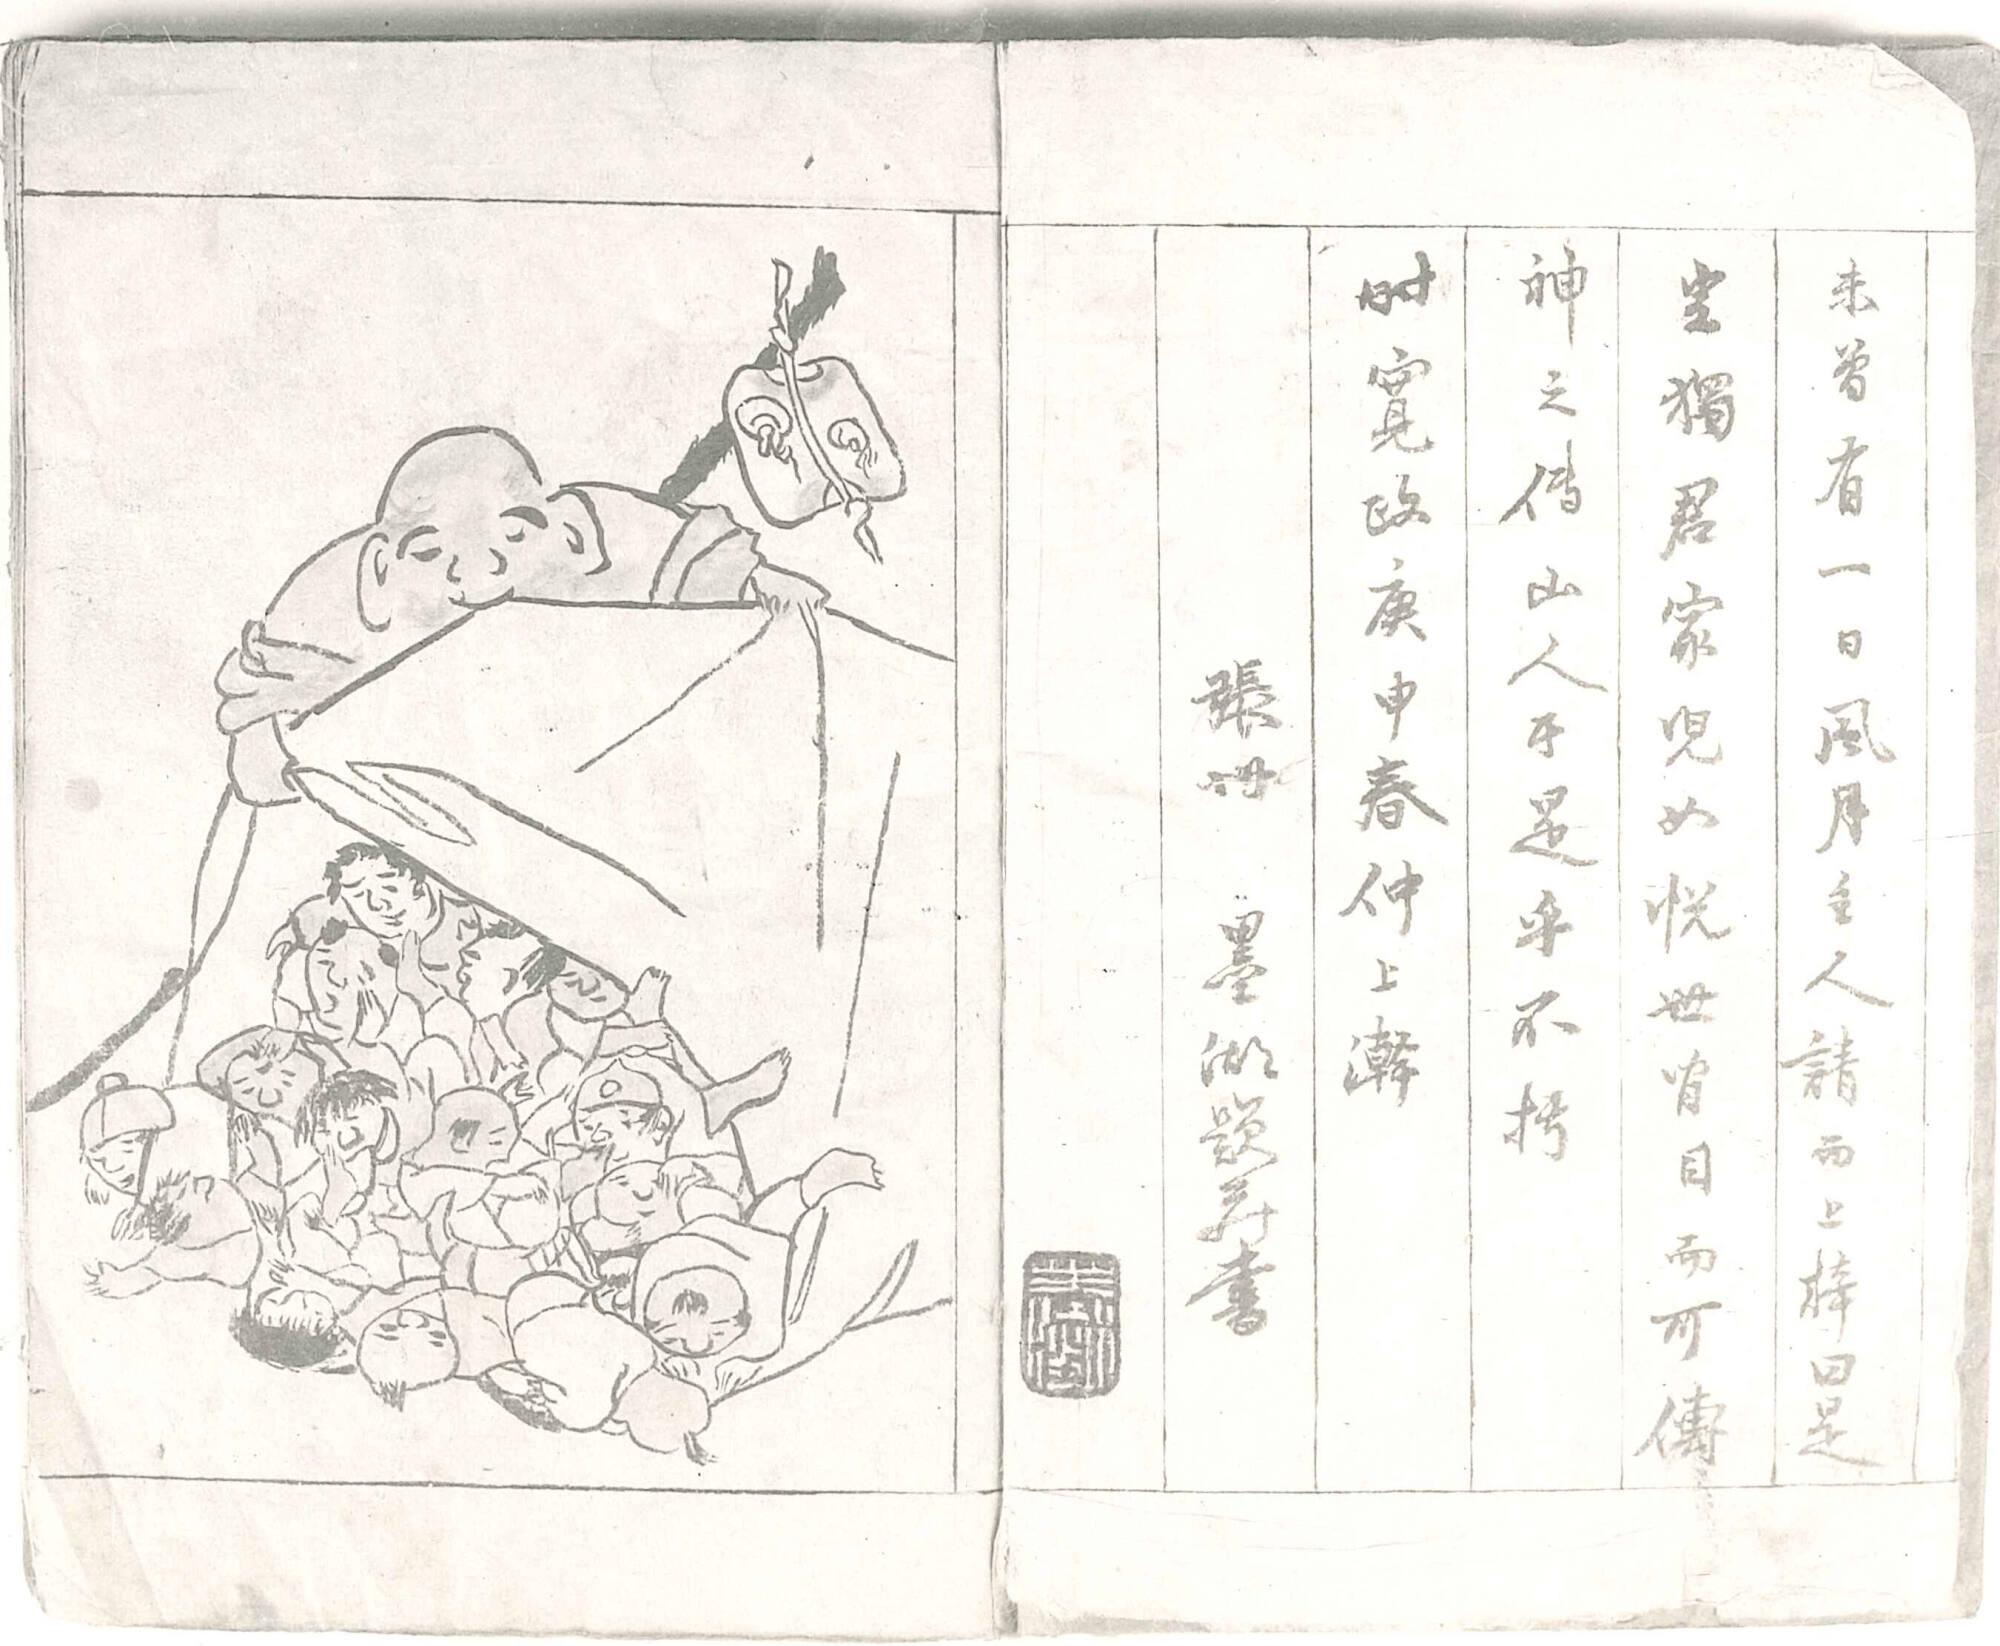 未曽有一日風月主人請而上梓曰是
豈獨君家児女悦世皆目而可傳
神之傳山人于是乎不朽
时寛政庚申春仲上澣
張州 墨湖題并書